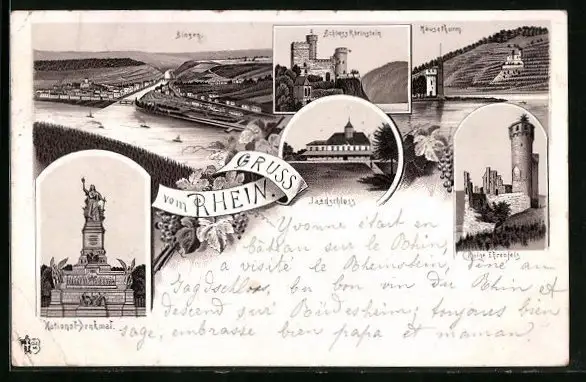 Bingen.
Schloss Rheinstein
Mäusethurm.
GRUSS
vom RHEIN.
Jagdschloss
Ruine Ehrenfels
National-Denkmal.
Yvonne était en
bâteau sur le Rhin,
a visité le Rheinstein, dîné au
Jagdschloss, bu bon vin du Rhin et
descend sur Rüdesheim; toujours bien
sage, embrasse bien papa et maman.